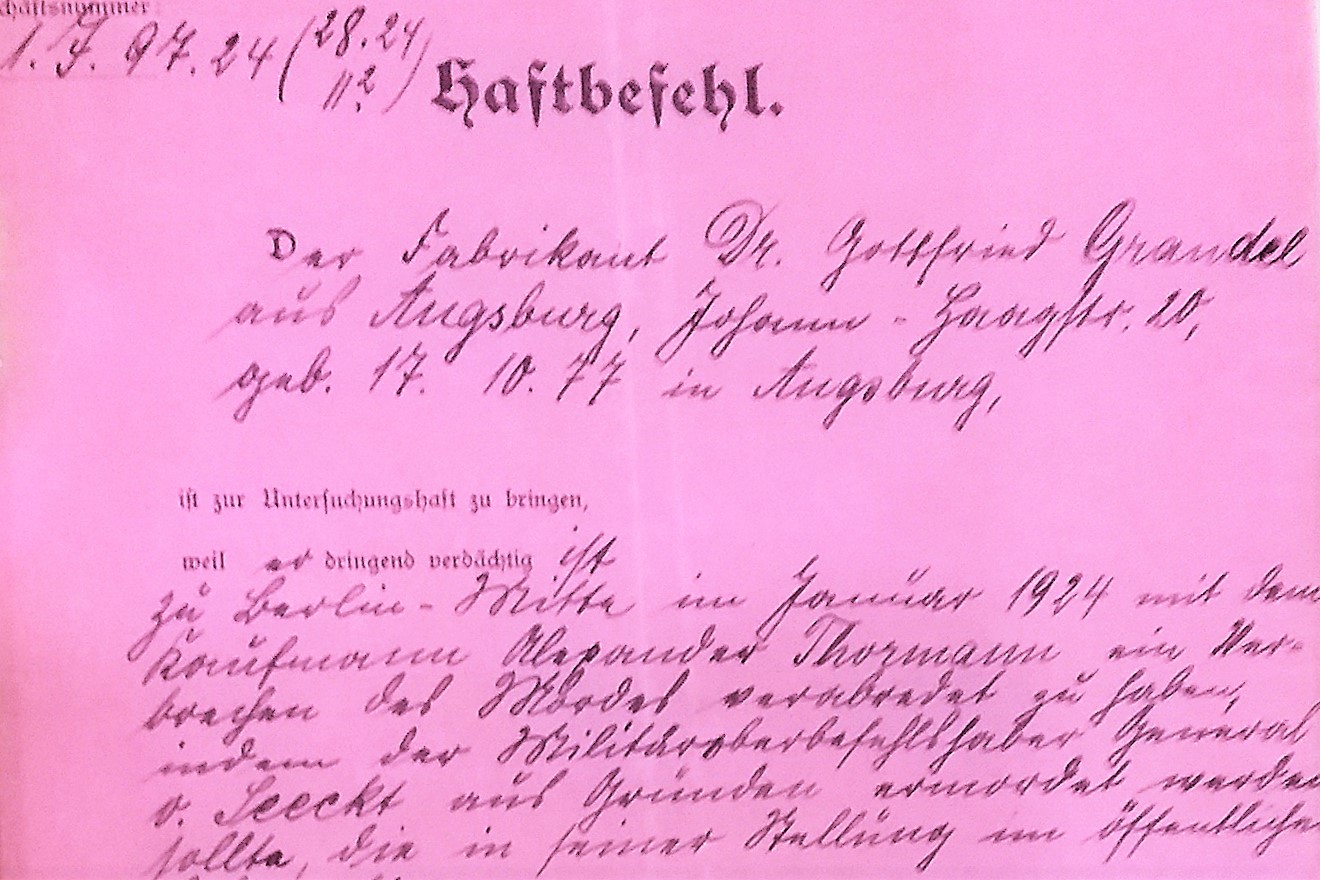 Geschäftsnummer:
1. J. 97.24 (28.24
11.2)
Haftbefehl.
Der Fabrikant Dr. Gottfried Grandel
aus Augsburg, Johann-Haagstr. 20,
geb. 17. 10. 77 in Augsburg,
ist zur Untersuchungshaft zu bringen,
weil er dringend verdächtig ist
zu Berlin-Mitte im Januar 1924 mit dem
Kaufmann Alexander Thormann ein Ver-
brechen des Mordes verabredet zu haben,
indem der Militäroberbefehlshaber General
v. Seeckt aus Gründen ermordet werden
sollte, die in seiner Stellung im öffentlichen